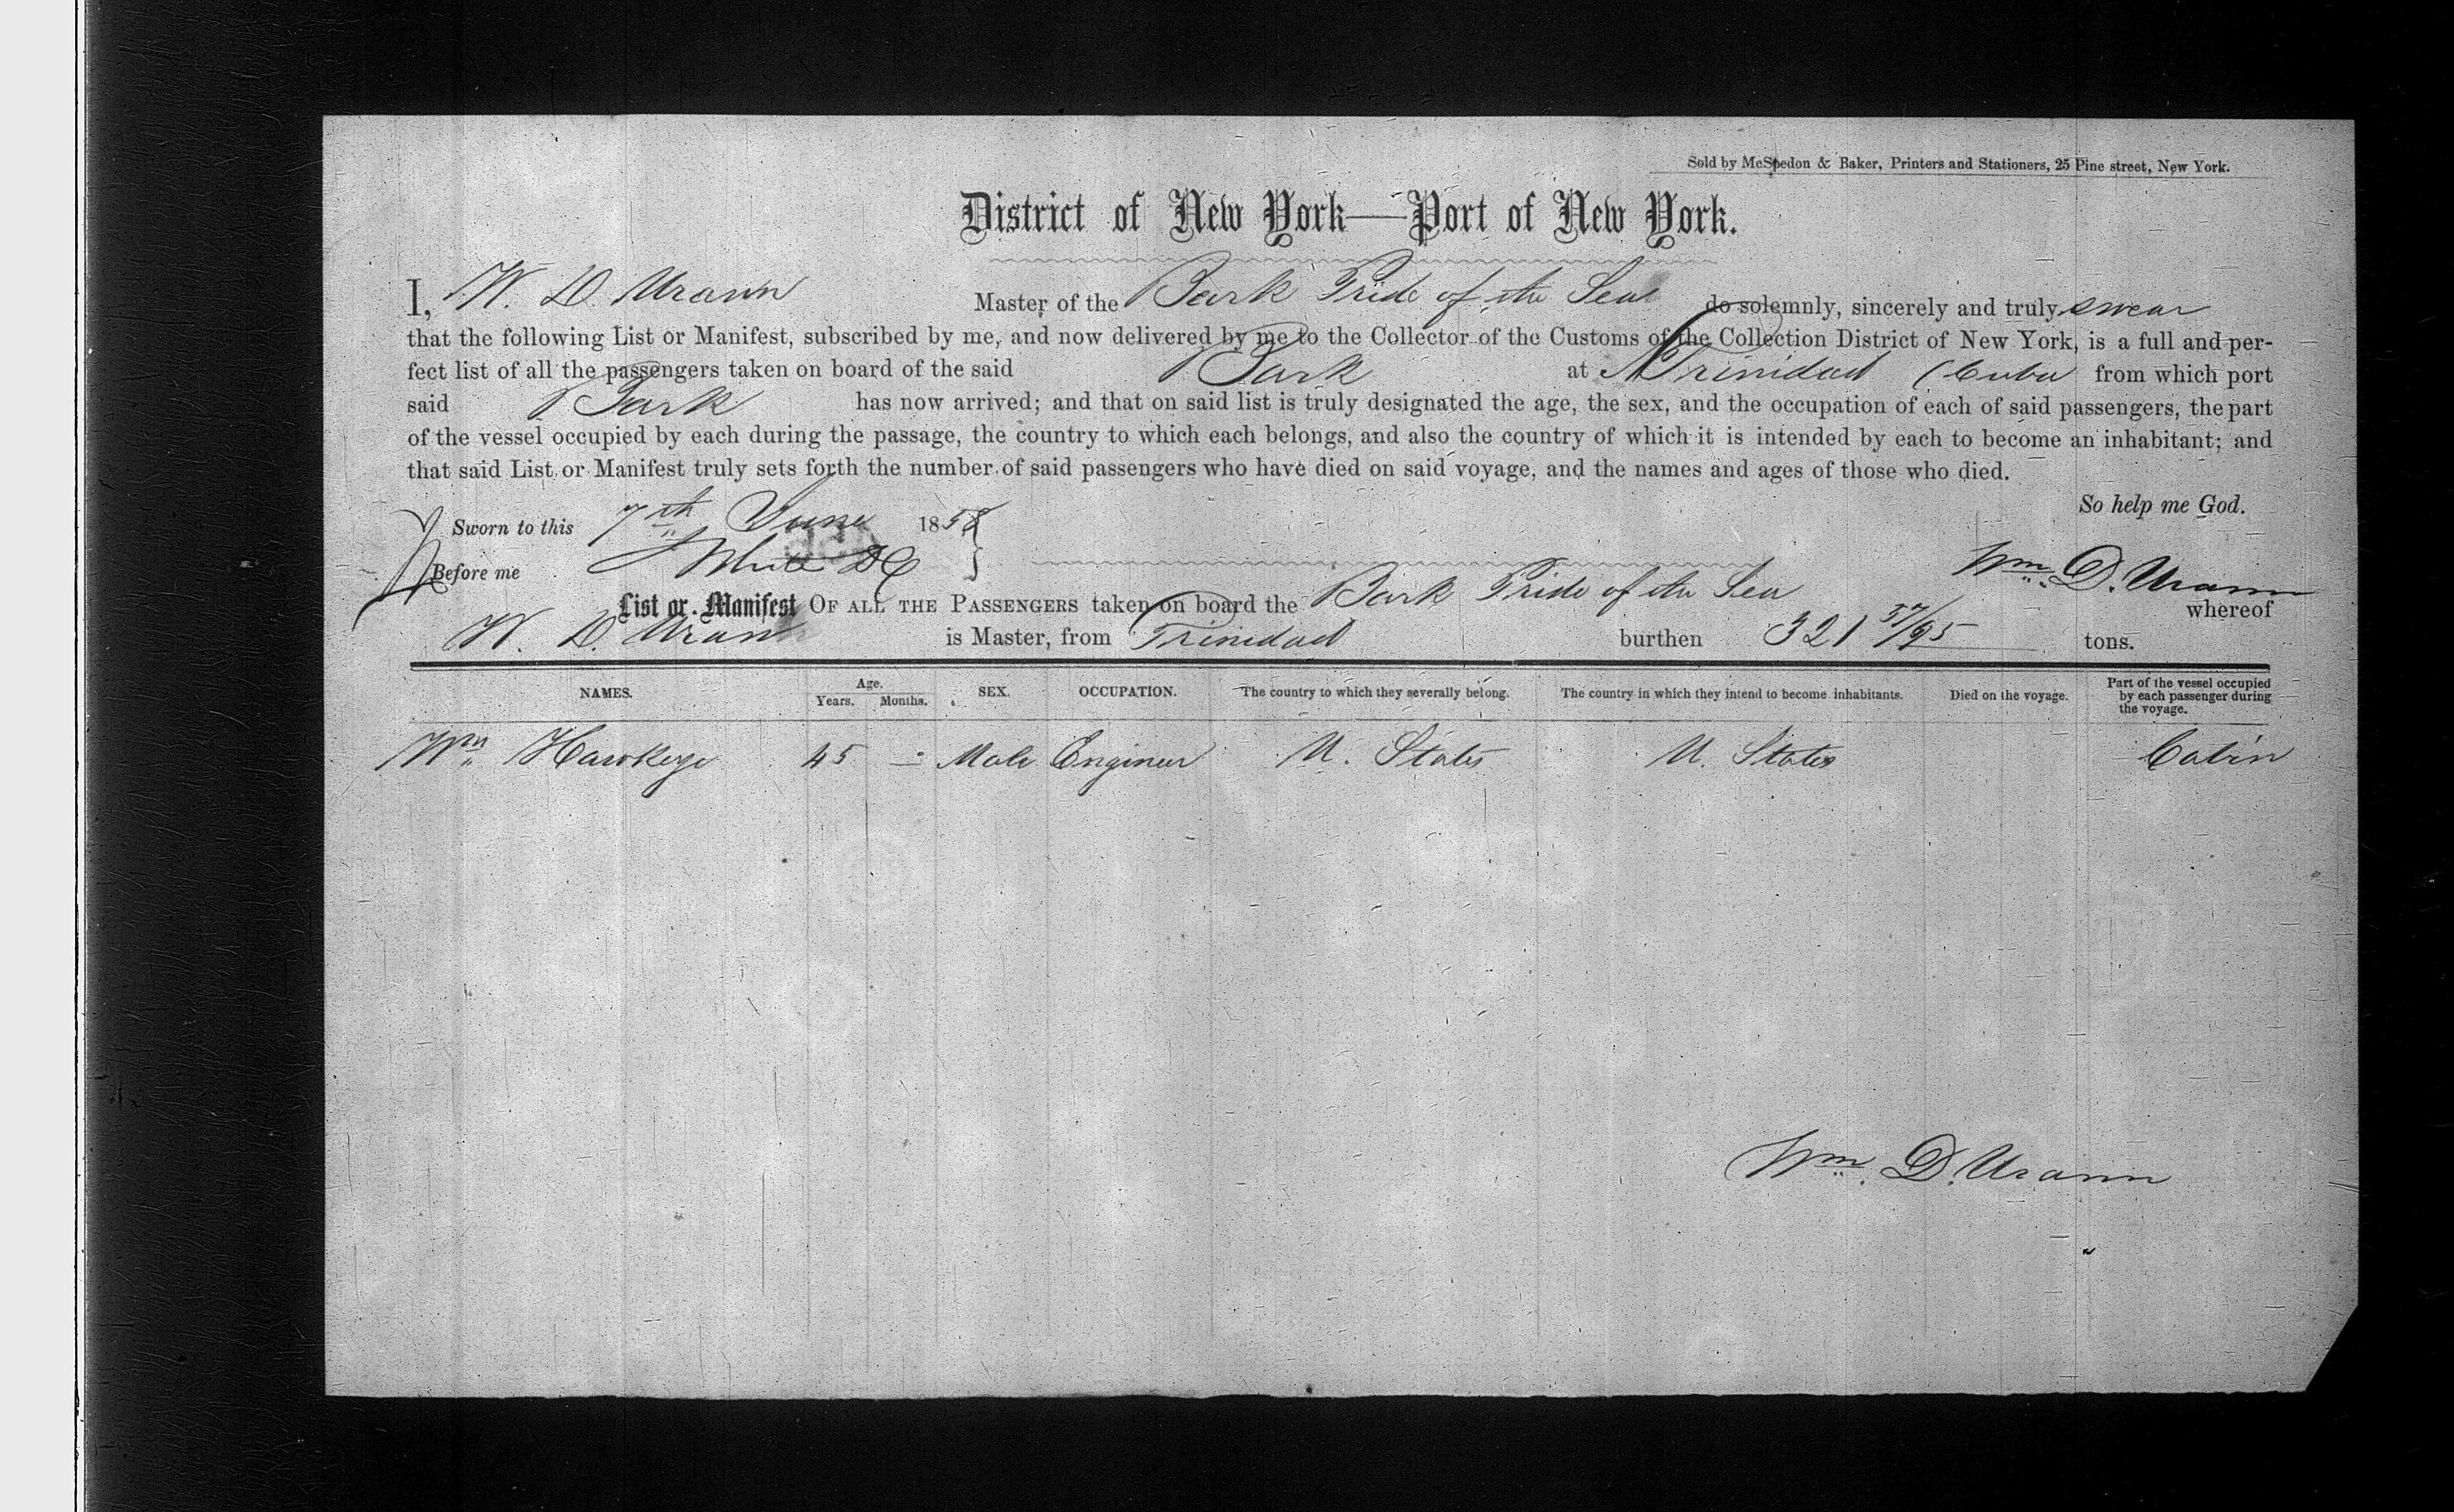 Sold by McSpedon & Baker, Printers and Stationers, 25 Pine street, New York.
District of New York—Port of New York.
I, W. D. Urann Master of the Bark Pride of the Sea do solemnly, sincerely and truly swear
that the following List or Manifest, subscribed by me, and now delivered by me to the Collector of the Customs of the Collection District of New York, is a full and per-
fect list of all the passengers taken on board of the said Bark at Trinidad (Cuba from which port
said Bark has now arrived; and that on said list is truly designated the age, the sex, and the occupation of each of said passengers, the part
of the vessel occupied by each during the passage, the country to which each belongs, and also the country of which it is intended by each to become an inhabitant; and
that said List or Manifest truly sets forth the number of said passengers who have died on said voyage, and the names and ages of those who died.
So help me God.
Sworn to this 7th June 1858
Before me White DC
Wm. D. Urann
List or Manifest OF ALL THE PASSENGERS taken on board the Bark Pride of the Sea whereof
W. D. Urann is Master, from Trinidad burthen 321 57/95 tons.
NAMES. Age. Years. Months. SEX. OCCUPATION. The country to which they severally belong. The country in which they intend to become inhabitants. Died on the voyage. Part of the vessel occupied by each passenger during the voyage.
Wm Hawkeye 45 Male Engineer U. States U. States Cabin
Wm. D. Urann